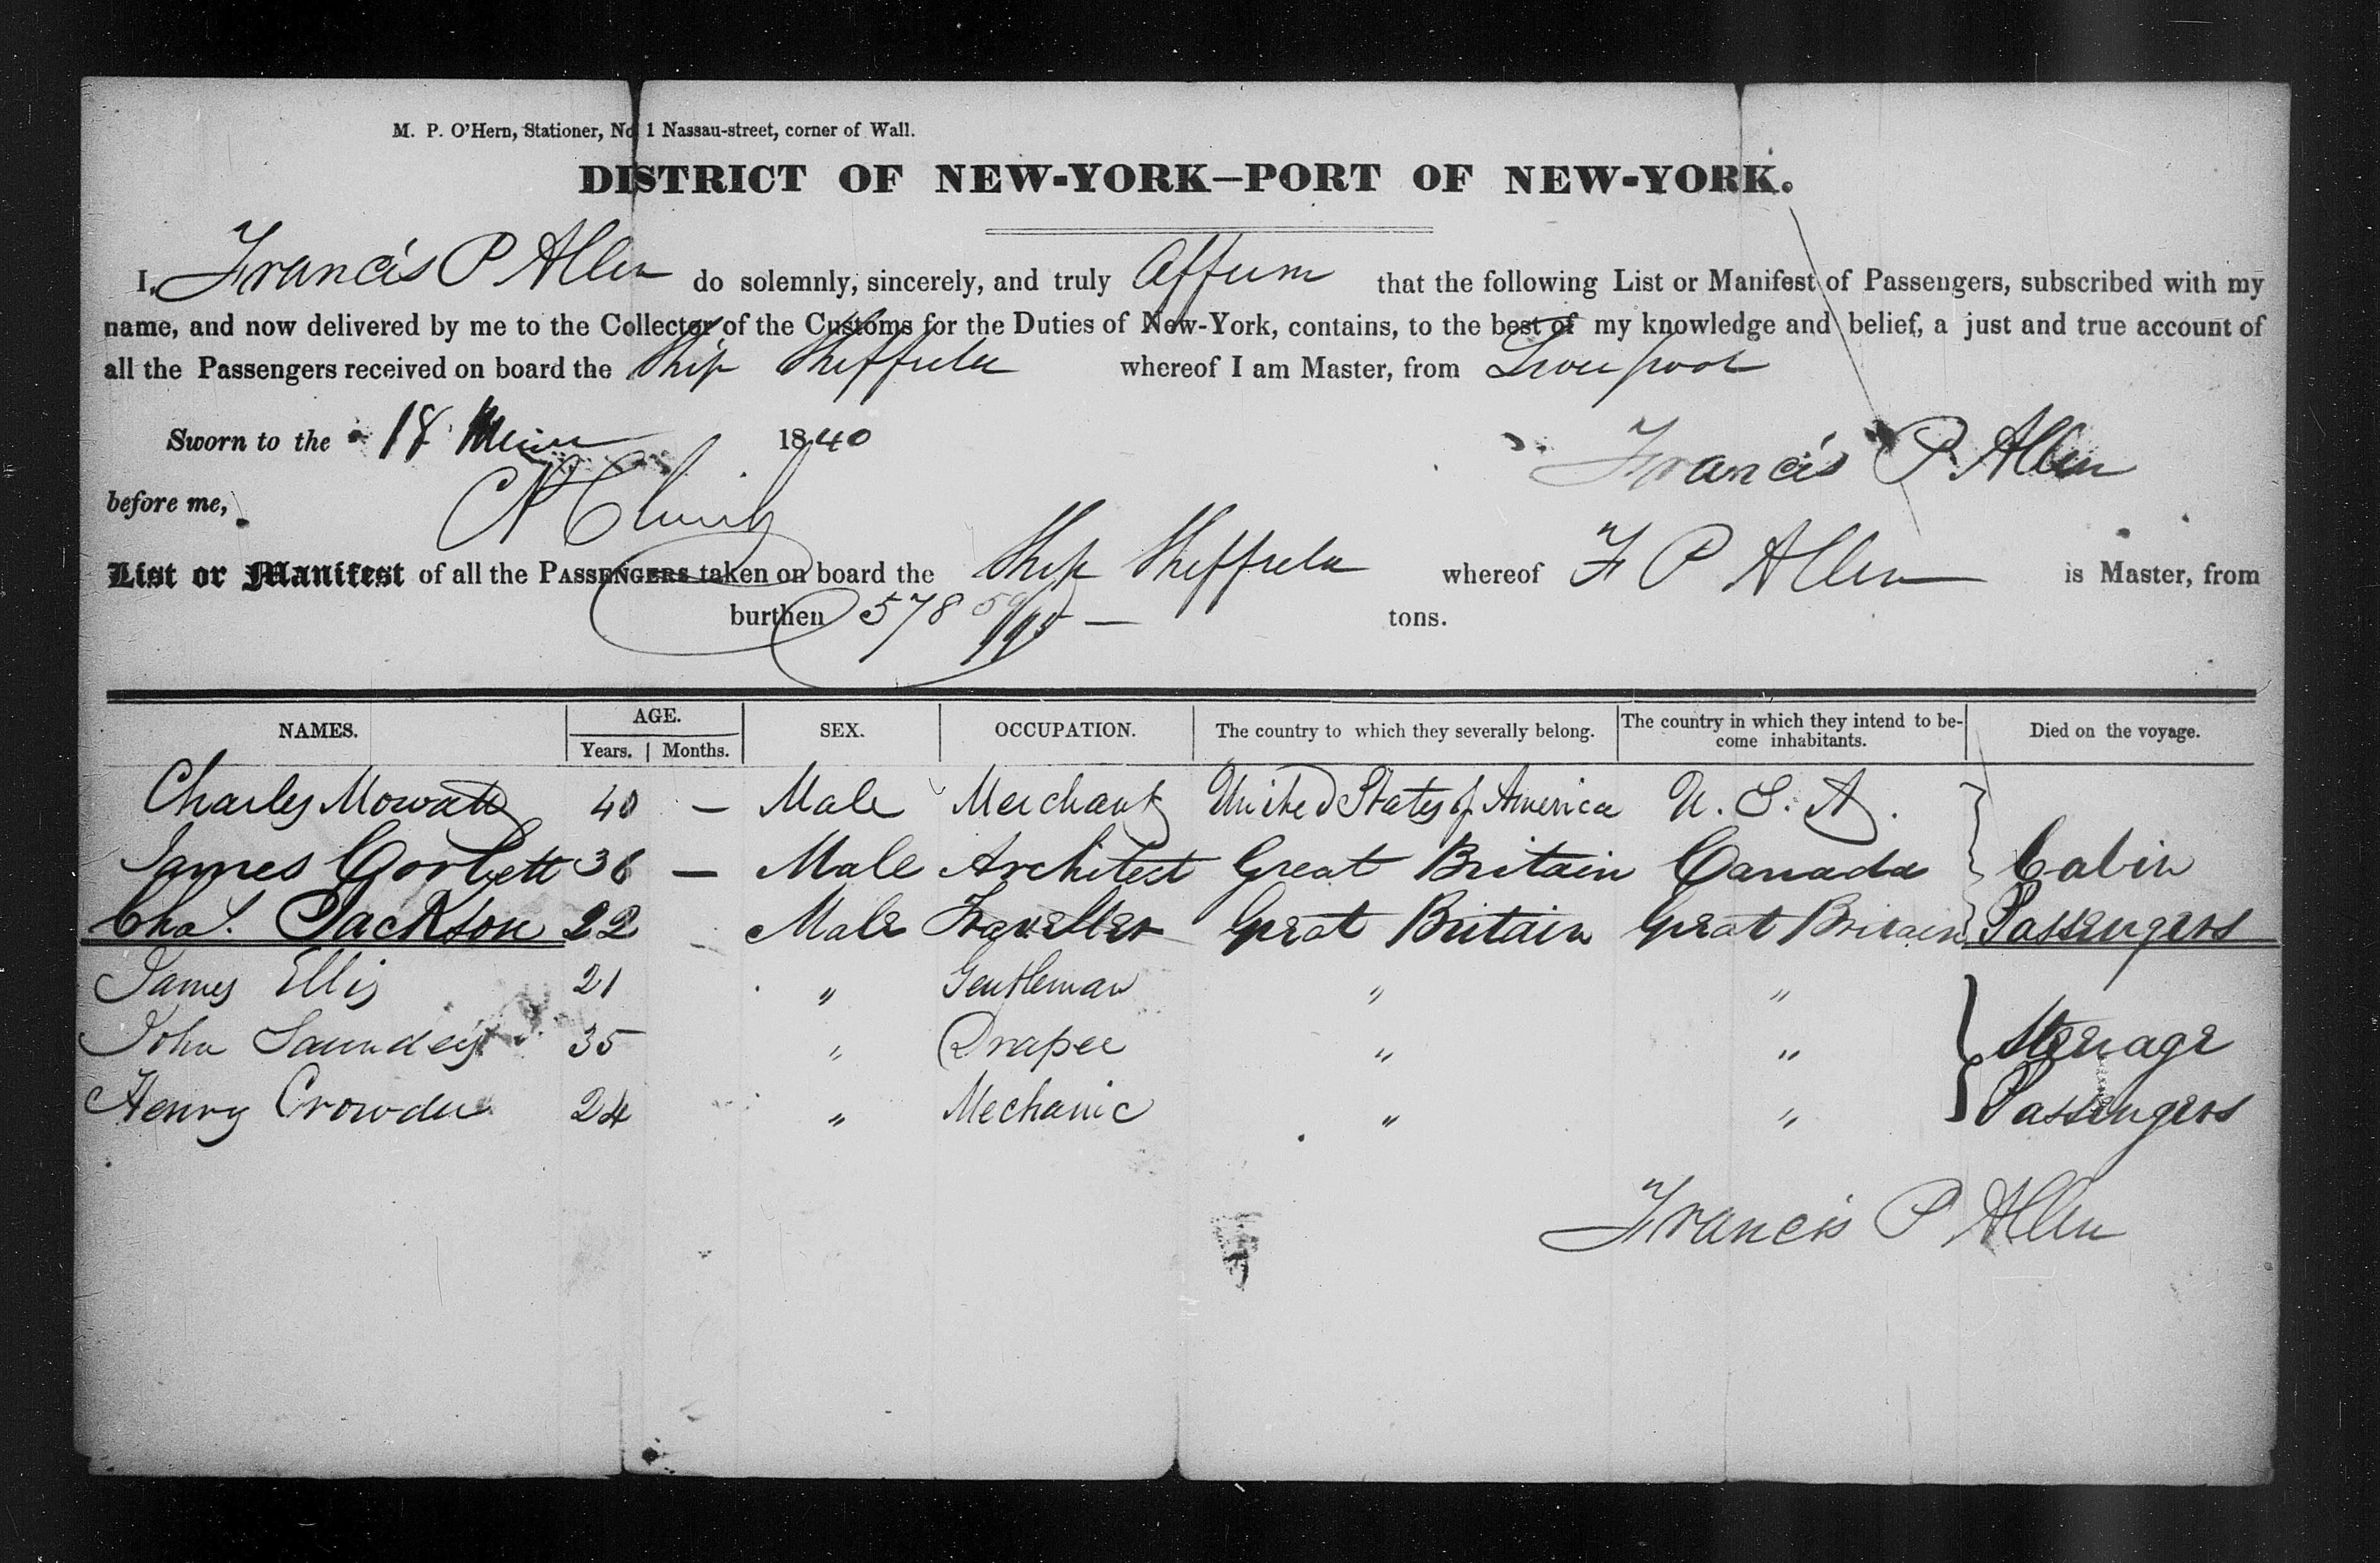 M. P. O'Hern, Stationer, No 1 Nassau-street, corner of Wall.
DISTRICT OF NEW-YORK—PORT OF NEW-YORK.
I, Francis P Allen do solemnly, sincerely, and truly Affirm that the following List or Manifest of Passengers, subscribed with my
name, and now delivered by me to the Collector of the Customs for the Duties of New-York, contains, to the best of my knowledge and belief, a just and true account of
all the Passengers received on board the Ship Sheffield whereof I am Master, from Liverpool
Sworn to the 18 1840 Francis P Allen
before me,
List or Manifest of all the PASSENGERS taken on board the Ship Sheffield whereof F P Allen is Master, from
burthen 578 59/95 — tons.
NAMES. AGE. SEX. OCCUPATION. The country to which they severally belong. The country in which they intend to be- Died on the voyage.
Years. Months. come inhabitants.
Charles Mowatt 40 — Male Merchant United States of America U. S. A.
James Corbett 36 — Male Architect Great Britain Canada Cabin
Chas. Jackson 22 Male Traveller Great Britain Great Britain Passengers
James Ellis 21 " Gentleman " "
John Saunders 35 " Draper " " Steerage
Henry Crowder 24 " Mechanic " " Passengers
Francis P Allen